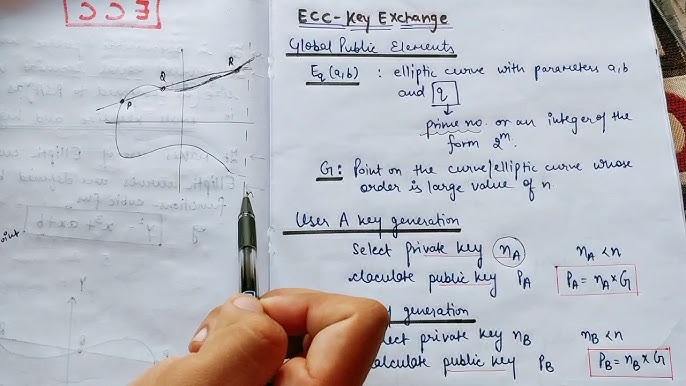 ECC
ECC-Key Exchange
Global Public Elements
Eq (a,b) : elliptic curve with parameters a,b
and q
prime no. or an integer of the
form 2^m.
G: Point on the curve/elliptic curve whose
order is large value of n.
User A key generation
Select private key nA nA < n
calculate public key PA PA = nA × G
generation
private key nB nB < n
calculate public key PB PB = nB × G
P
Q
R
Elliptic curves
cubic
y² = x³ + ax + b
oint.
Y